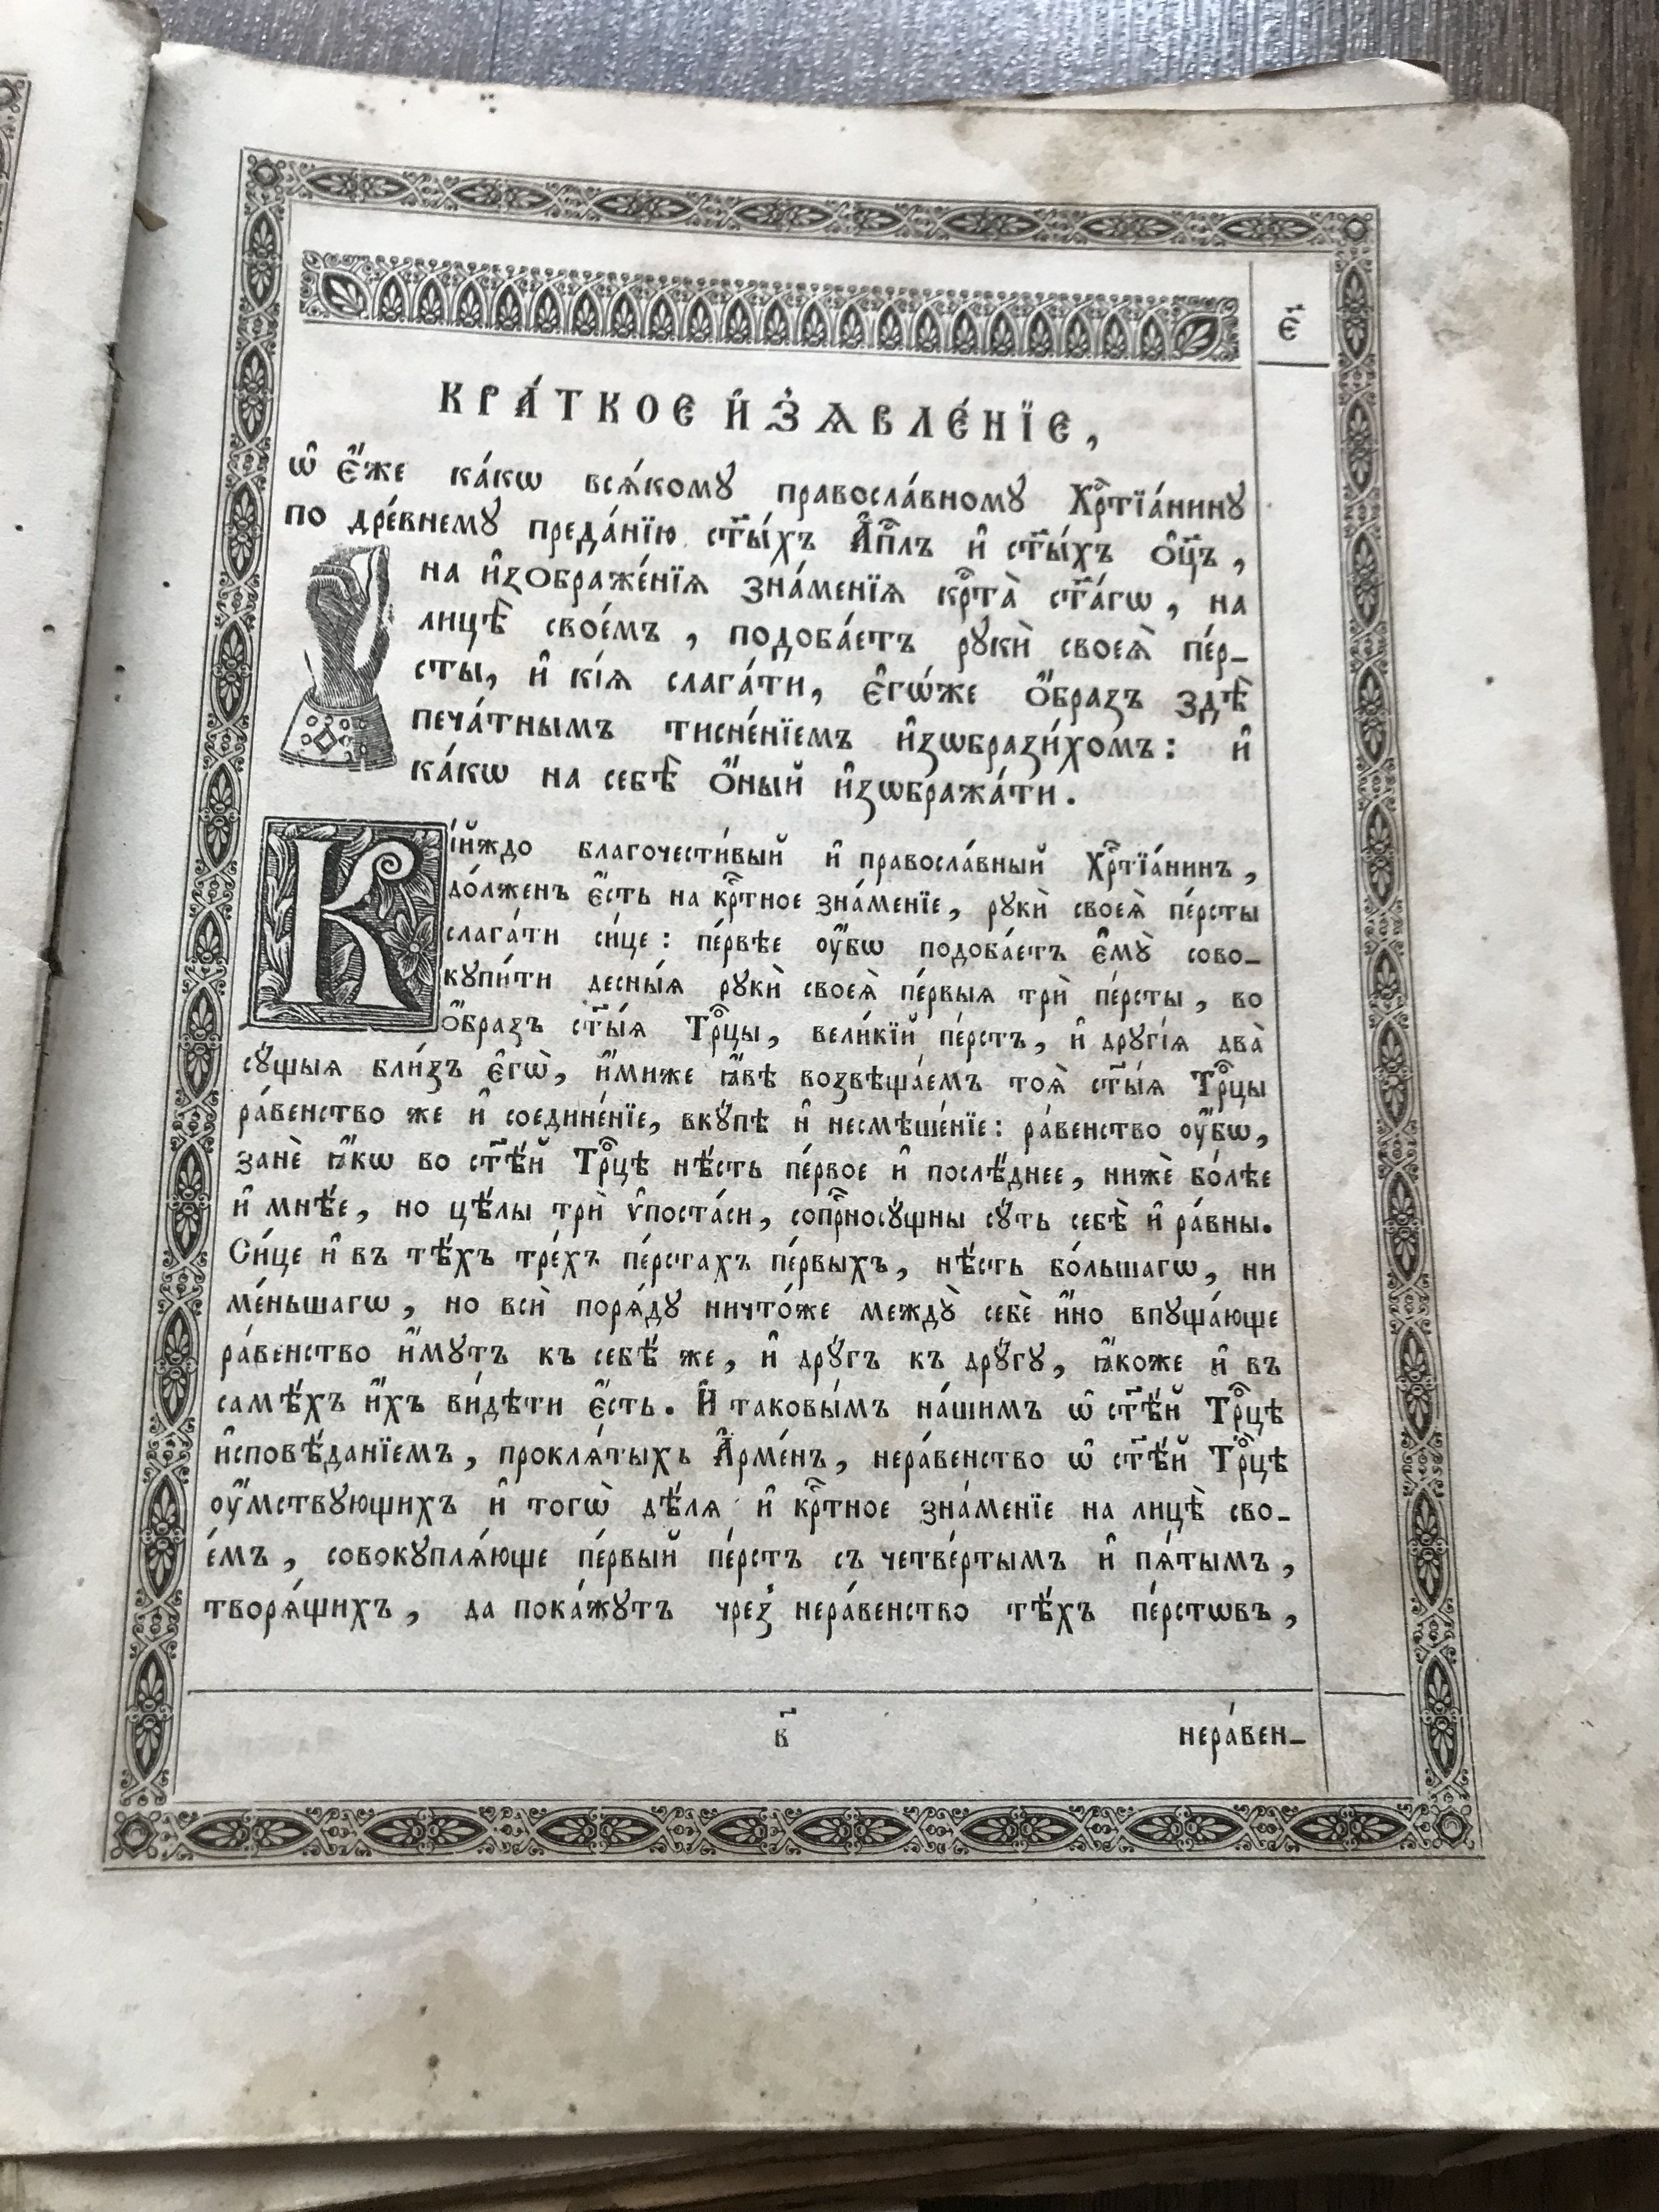 є҃
КРА́ТКОЕ И҆ЗѦВЛЕ́НЇЕ,
ѡ҆ є҆́же ка́кѡ всѧ́комꙋ правосла́вномꙋ Хрⷭ҇тїа́нинꙋ
по дре́внемꙋ преда́нїю ст҃ы́хъ А҆пⷭ҇лъ и҆ ст҃ы́хъ ѻ҆ц҃ъ,
на и҆зображе́нїѧ зна́менїѧ крⷭ҇та̀ ст҃а́гѡ, на
лицѣ̀ свое́мъ, подоба́етъ рꙋкѝ своеѧ̀ пе́р-
сты, и҆ кі́ѧ слага́ти, є҆гѡ́же ѻ҆́бразъ здѣ̀
печа́тнымъ тисне́нїемъ и҆зѡбрази́хомъ: и҆
ка́кѡ на себѣ̀ ѻ҆́ный и҆зѡбража́ти.
Кі́йждо благочести́вый и҆ правосла́вный Хрⷭ҇тїа́нинъ,
до́лженъ є҆́сть на крⷭ҇тное зна́менїе, рꙋкѝ своеѧ̀ пе́рсты
слага́ти си́це: пе́рвѣе ᲂу҆́бѡ подоба́етъ є҆мꙋ̀ сово-
кꙋпи́ти десны́ѧ рꙋкѝ своеѧ̀ пе́рвыѧ трѝ пе́рсты, во
ѻ҆́бразъ ст҃ы́ѧ Трⷪ҇цы, вели́кїй пе́рстъ, и҆ дрꙋгі́ѧ два̀
сꙋ́щыѧ бли́зъ є҆гѡ̀, и҆́миже ꙗ҆́вѣ возвѣща́емъ тоѧ̀ ст҃ы́ѧ Трⷪ҇цы
ра́венство же и҆ соедине́нїе, вкꙋ́пѣ и҆ несмѣше́нїе: ра́венство ᲂу҆́бѡ,
занѐ ꙗ҆́кѡ во ст҃ѣ́й Трⷪ҇цѣ нѣ́сть пе́рвое и҆ послѣ́днее, нижѐ бо́лѣе
и҆ мнѣ́е, но цѣ́лы трѝ ѵ҆поста́си, сопрⷭ҇носꙋ́щны сꙋ́ть себѣ̀ и҆ ра́вны.
Си́це и҆ въ тѣ́хъ тре́хъ пе́рстахъ пе́рвыхъ, нѣ́сть бо́льшагѡ, ни
ме́ньшагѡ, но всѝ порѧ́дꙋ ничто́же междꙋ̀ себѐ и҆́но впꙋща́юще
ра́венство и҆́мꙋтъ къ себѣ́ же, и҆ дрꙋ́гъ къ дрꙋ́гꙋ, ꙗ҆́коже и҆ въ
самѣ́хъ и҆́хъ ви́дѣти є҆́сть. И҆ таковы́мъ на́шимъ ѡ҆ ст҃ѣ́й Трⷪ҇цѣ
и҆сповѣ́данїемъ, проклѧ́тыхъ А҆рме́нъ, нера́венство ѡ҆ ст҃ѣ́й Трⷪ҇цѣ
ᲂу҆́мствꙋющихъ и҆ тогѡ̀ дѣ́лѧ и҆ крⷭ҇тное зна́менїе на лицѣ̀ сво-
е́мъ, совокꙋплѧ́юще пе́рвый пе́рстъ съ четве́ртымъ и҆ пѧ́тымъ,
творѧ́щихъ, да пока́жꙋтъ чрез̾ нера́венство тѣ́хъ пе́рстѡвъ,
в҃
нера́вен-